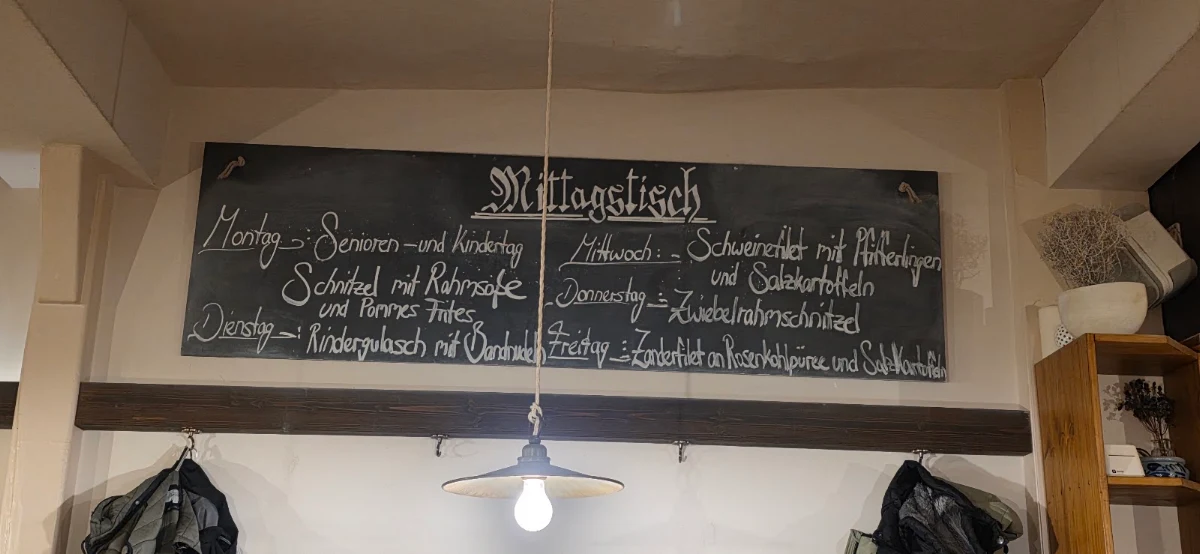 Mittagstisch
Montag -: Senioren - und Kindertag
Schnitzel mit Rahmsoße
und Pommes Frites
Dienstag -: Rindergulasch mit Bandnudeln
Mittwoch : - Schweinefilet mit Pfifferlingen
und Salzkartoffeln
Donnerstag -: Zwiebelrahmschnitzel
Freitag -: Zanderfilet an Rosenkohlpüree und Salzkartoffeln